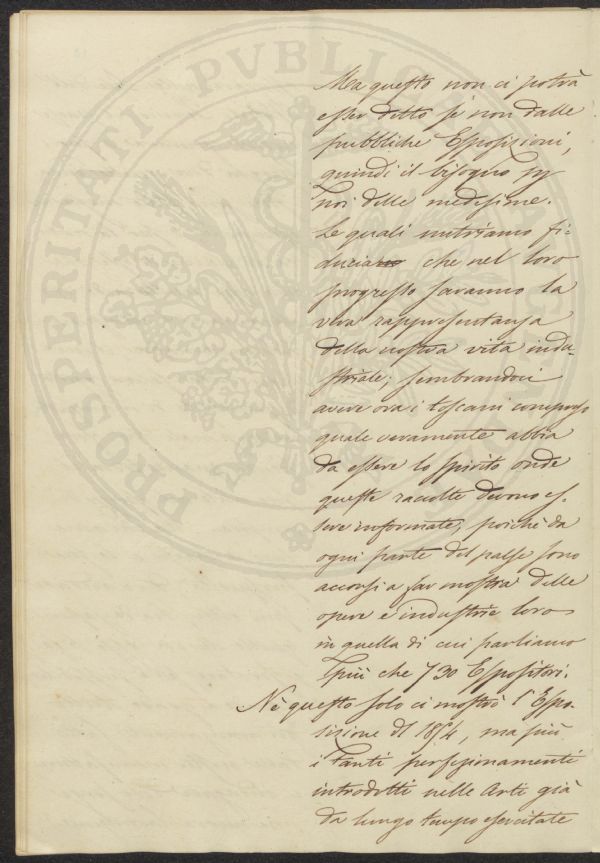 PROSPERITATI PVBLICAE
Ma questo non ci potrà
esser detto se non dalle
pubbliche Esposizioni,
quindi il bisogno per
noi delle medesime.
Le quali nutriamo fi=
ducia che nel loro
progresso saranno la
viva rappresentanza
della nostra vita indu-
striale; sembrandoci
avere ora i toscani compreso
quale veramente abbia
da essere lo spirito onde
queste raccolte devono es-
sere informate, poichè da
ogni parte del paese sono
accorsi a far mostra delle
opere e industrie loro
in quella di cui parliamo
più che 730 Espositori.
Nè questo solo ci mostrò l'Espo-
sizione del 1854, ma più
i tanti perfezionamenti
introdotti nelle Arti già
da lungo tempo esercitate